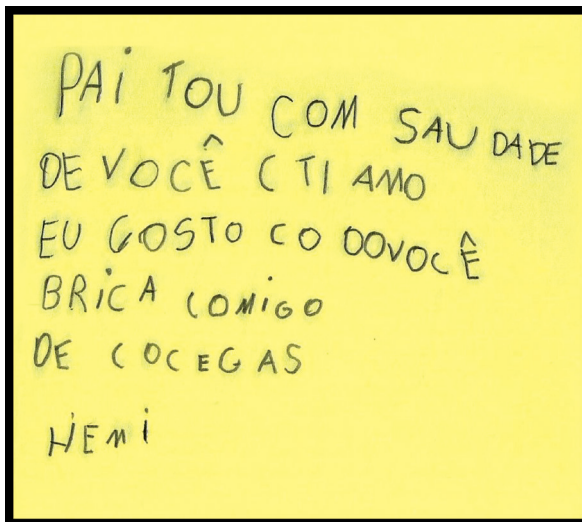 PAi TOU COM SAUDADE
DE VOCÊ C TI AMO
EU GOSTO CO DOVOCÊ
BRiCA COMiGO
DE COCEGAS
HEMi